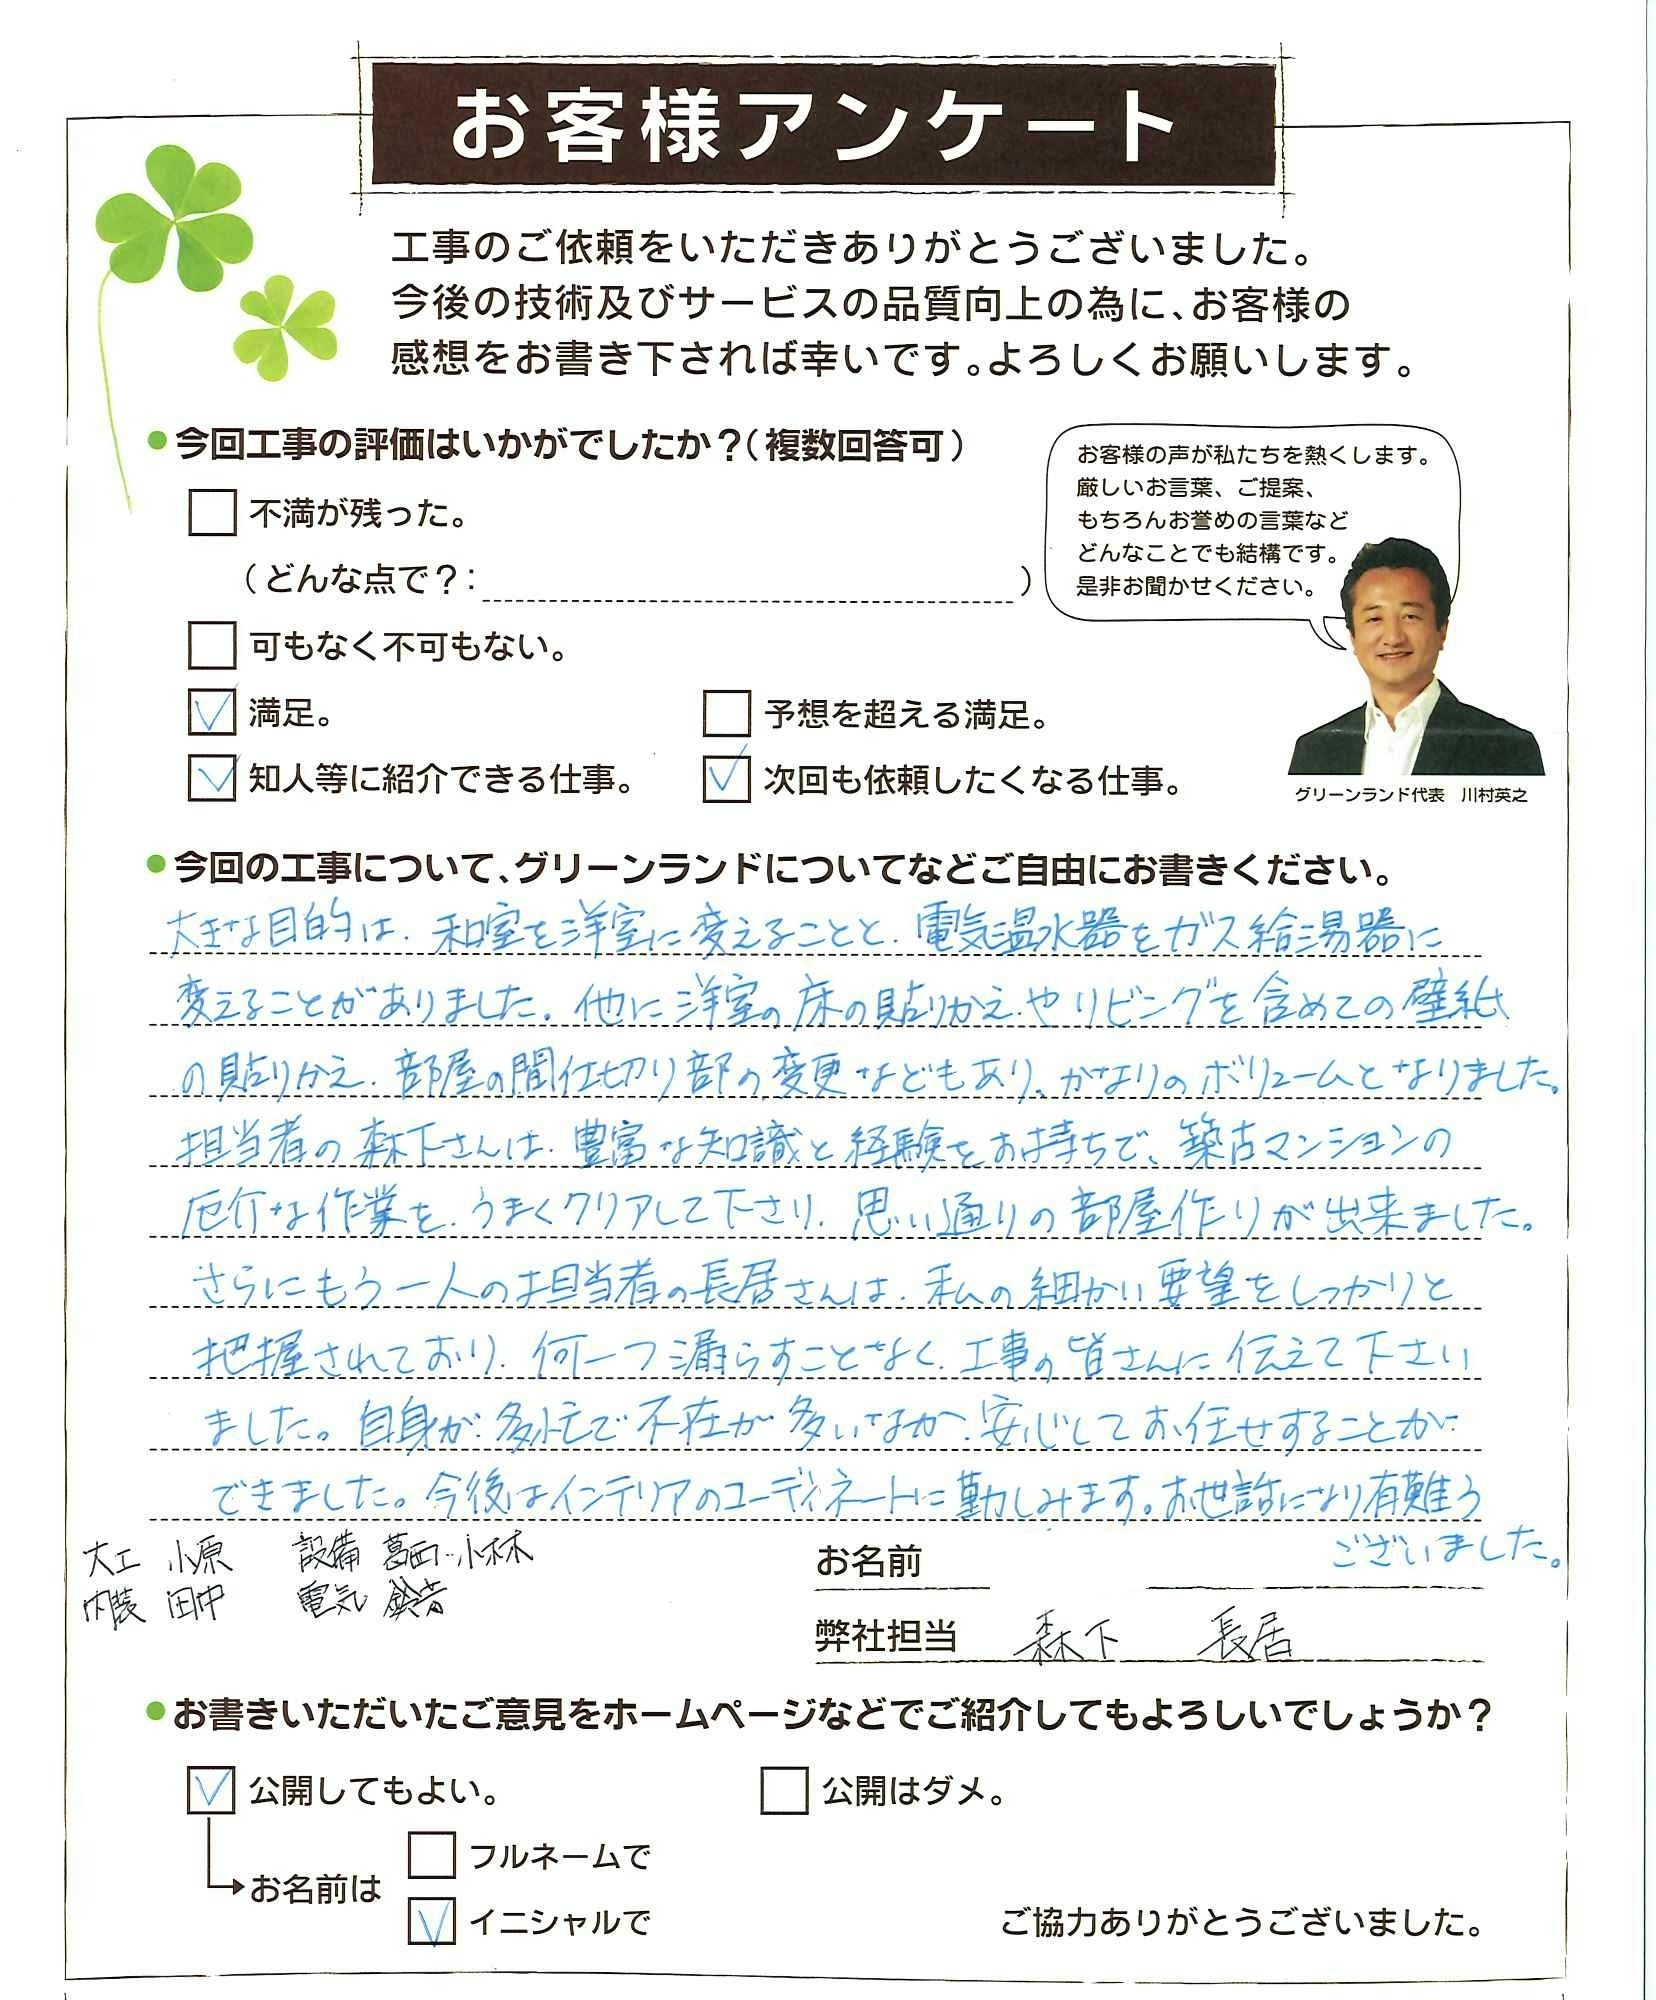 お客様アンケート
工事のご依頼をいただきありがとうございました。
今後の技術及びサービスの品質向上の為に、お客様の
感想をお書き下されば幸いです。よろしくお願いします。
今回工事の評価はいかがでしたか？（複数回答可）
お客様の声が私たちを熱くします。
厳しいお言葉、ご提案、
もちろんお誉めの言葉など
どんなことでも結構です。
是非お聞かせください。
グリーンランド代表　川村英之
不満が残った。
（どんな点で？：　　　）
可もなく不可もない。
満足。　予想を超える満足。
知人等に紹介できる仕事。　次回も依頼したくなる仕事。
今回の工事について、グリーンランドについてなどご自由にお書きください。
大きな目的は、和室を洋室に変えることと、電気温水器をガス給湯器に
変えることがありました。他に洋室の床の貼りかえやリビングを含めての壁紙
の貼りかえ、部屋の間仕切り部の変更などもあり、かなりのボリュームとなりました。
担当者の森下さんは、豊富な知識と経験をお持ちで、築古マンションの
厄介な作業を、うまくクリアして下さり、思い通りの部屋作りが出来ました。
さらにもう一人の担当者の長居さんは、私の細かい要望をしっかりと
把握されており、何一つ漏らすことなく、工事の皆さんに伝えて下さい
ました。自身が多忙で不在が多いなか、安心してお任せすることが
できました。今後はインテリアのコーディネートに勤しみます。お世話になり有難う
ございました。
大工　小原　設備　葛西・小林
内装　田中　電気　鈴吉
お名前
弊社担当　森下　長居
お書きいただいたご意見をホームページなどでご紹介してもよろしいでしょうか？
公開してもよい。　公開はダメ。
お名前は
フルネームで
イニシャルで
ご協力ありがとうございました。